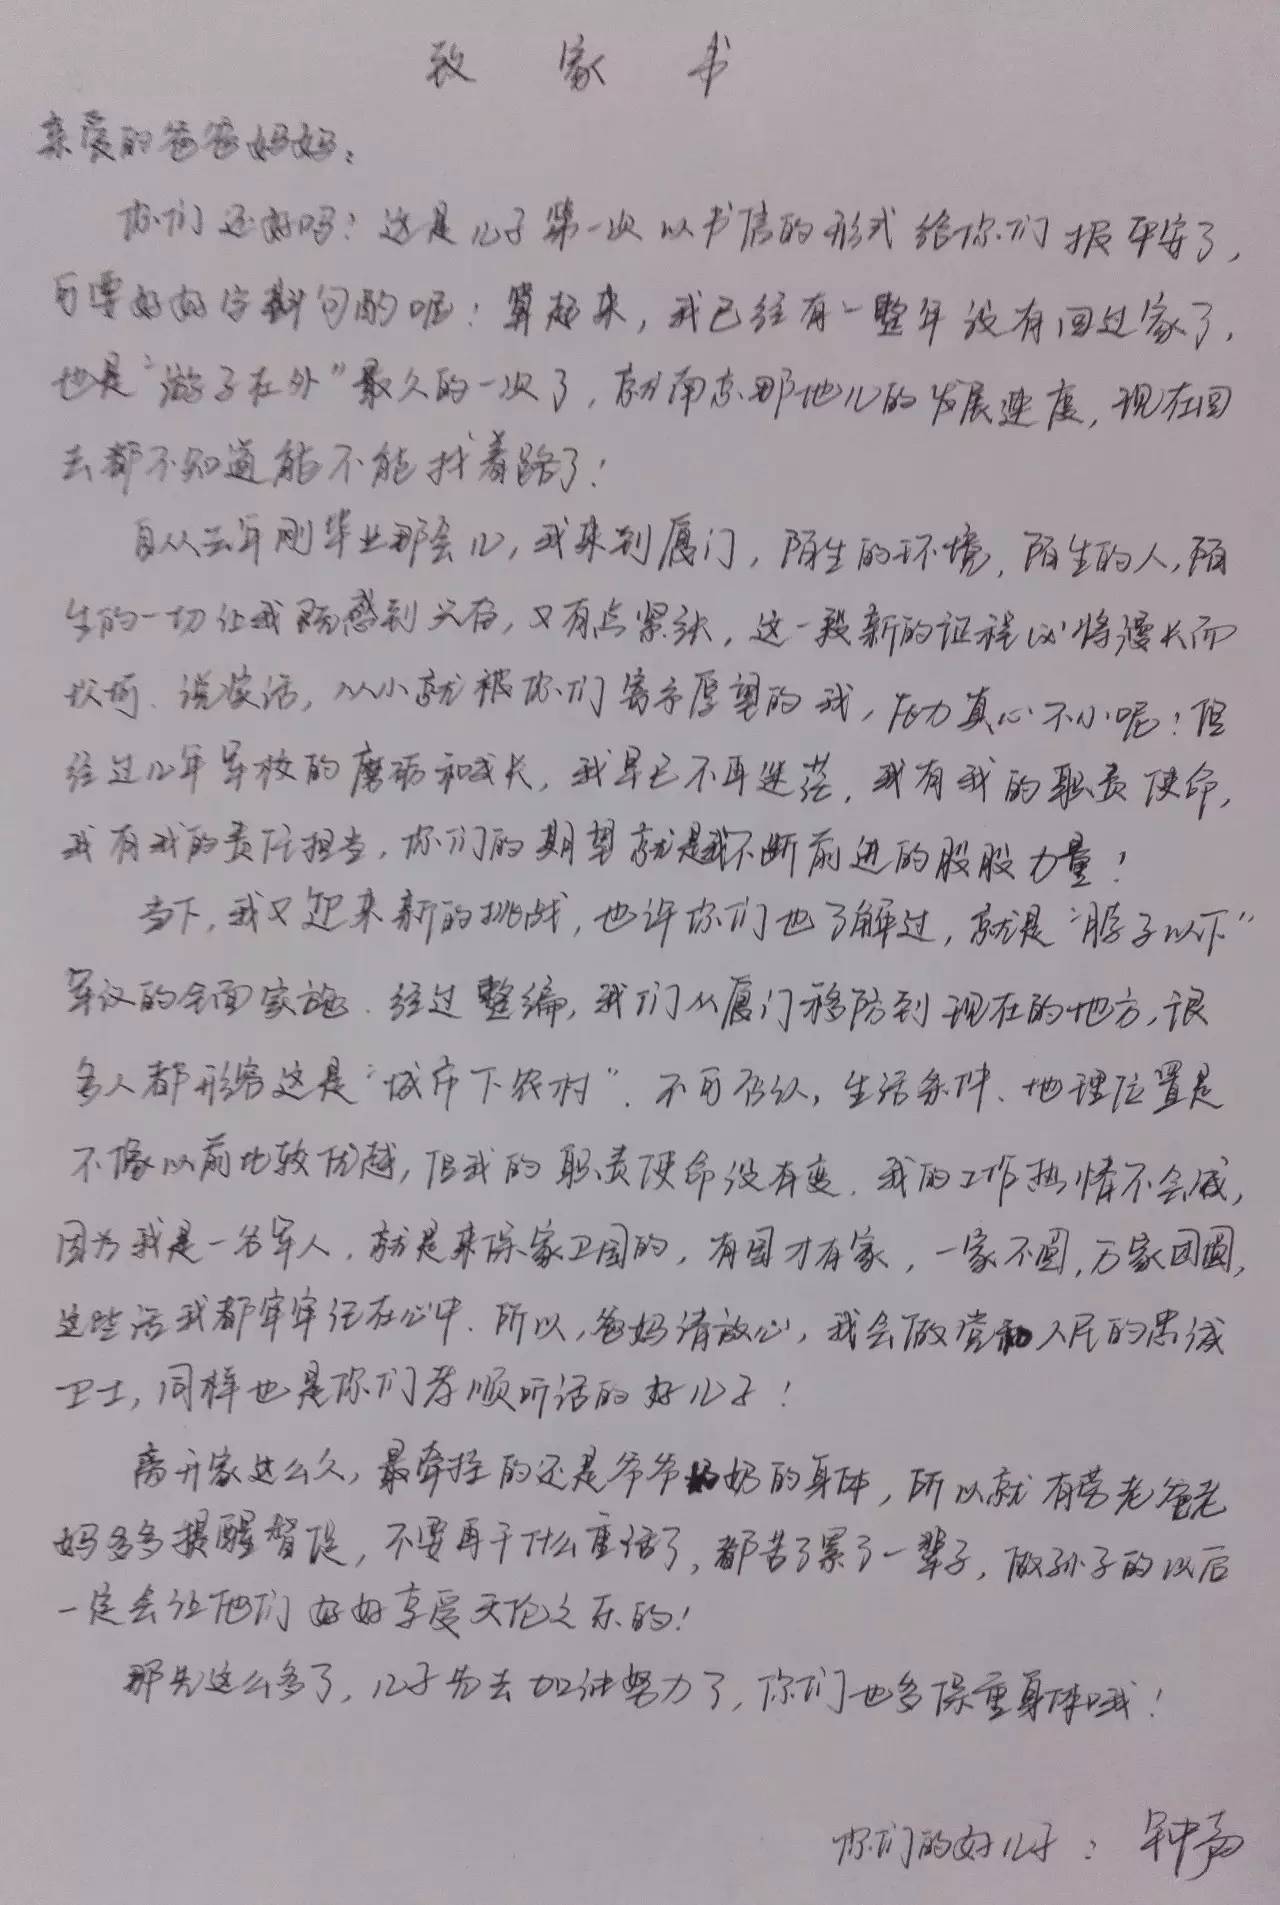 致家书
亲爱的爸爸妈妈：
你们还好吗？这是儿子第一次以书信的形式给你们报平安了，
可要好好字斟句酌呢！算起来，我已经有一整年没有回过家了，
也是“游子在外”最久的一次了，就南京那地儿的发展速度，现在回
去都不知道能不能找着路了！
自从去年刚毕业那会儿，我来到厦门，陌生的环境，陌生的人，陌
生的一切让我感到兴奋，又有点紧张，这一段新的征程必将漫长而
坎坷．说实话，从小就被你们寄予厚望的我，压力真心不小呢！但
经过几年军校的磨砺和成长，我早已不再迷茫．我有我的职责使命，
我有我的责任担当，你们的期望就是我不断前进的股股力量！
当下，我又迎来新的挑战，也许你们也了解过，就是“脖子以下”
军改的全面实施．经过整编，我们从厦门移防到现在的地方，很
多人都形容这是“城市下农村”．不可否认，生活条件、地理位置是
不像以前比较优越，但我的职责使命没有变．我的工作热情不会减，
因为我是一名军人，就是来保家卫国的，有国才有家，一家不圆，万家团圆，
这些话我都牢牢记在心中．所以，爸妈请放心，我会做党和人民的忠诚
卫士，同样也是你们孝顺听话的好儿子！
离开家这么久，最牵挂的还是爷爷奶奶的身体，所以就有劳老爸老
妈多多提醒督促，不要再干什么重活了，都苦了累了一辈子，做孙子的以后
一定会让他们好好享受天伦之乐的！
那先这么多了，儿子先去加油努力了，你们也多保重身体哦！
你们的好儿子：钟